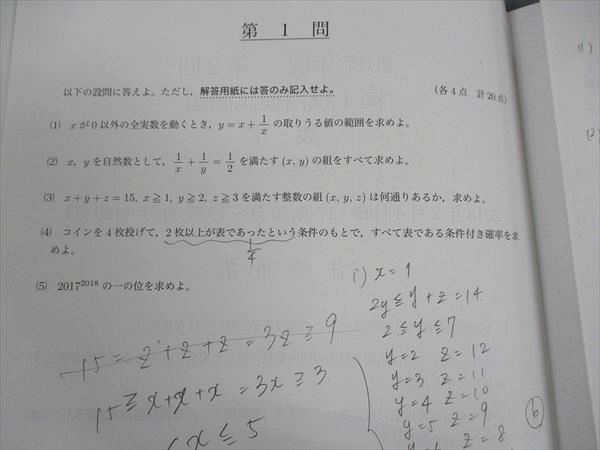 第 1 問
以下の設問に答えよ。ただし,解答用紙には答のみ記入せよ。 (各4点 計20点)
(1) xが0以外の全実数を動くとき,y=x+1/x の取りうる値の範囲を求めよ。
(2) x, yを自然数として,1/x+1/y=1/2 を満たす(x, y)の組をすべて求めよ。
(3) x+y+z=15, x≧1, y≧2, z≧3 を満たす整数の組(x, y, z)は何通りあるか,求めよ。
(4) コインを4枚投げて,2枚以上が表であったという条件のもとで,すべて表である条件付き確率を求
めよ。
(5) 2017^2018 の一の位を求めよ。
i) x=1
2y≦y+z=14
2≦y≦7
y=2 z=12
y=3 z=11
y=4 z=10
y=5 z=9
z=8
6
15=z+z+z=3z≧9
15≧x+x+x=3x≧3
x≦5
(1)